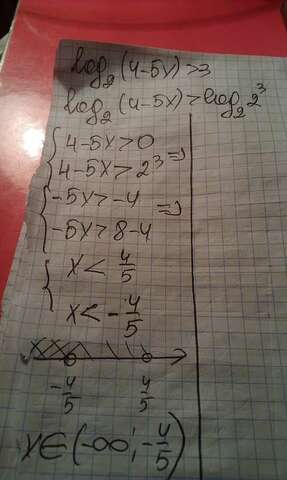 log₂(4-5x)>3
log₂(4-5x)>log₂2³
{ 4-5x>0
4-5x>2³ =>
{ -5x>-4
-5x>8-4 =>
{ x < 4/5
x < -4/5
-4/5 4/5
x∈(-∞; -4/5)